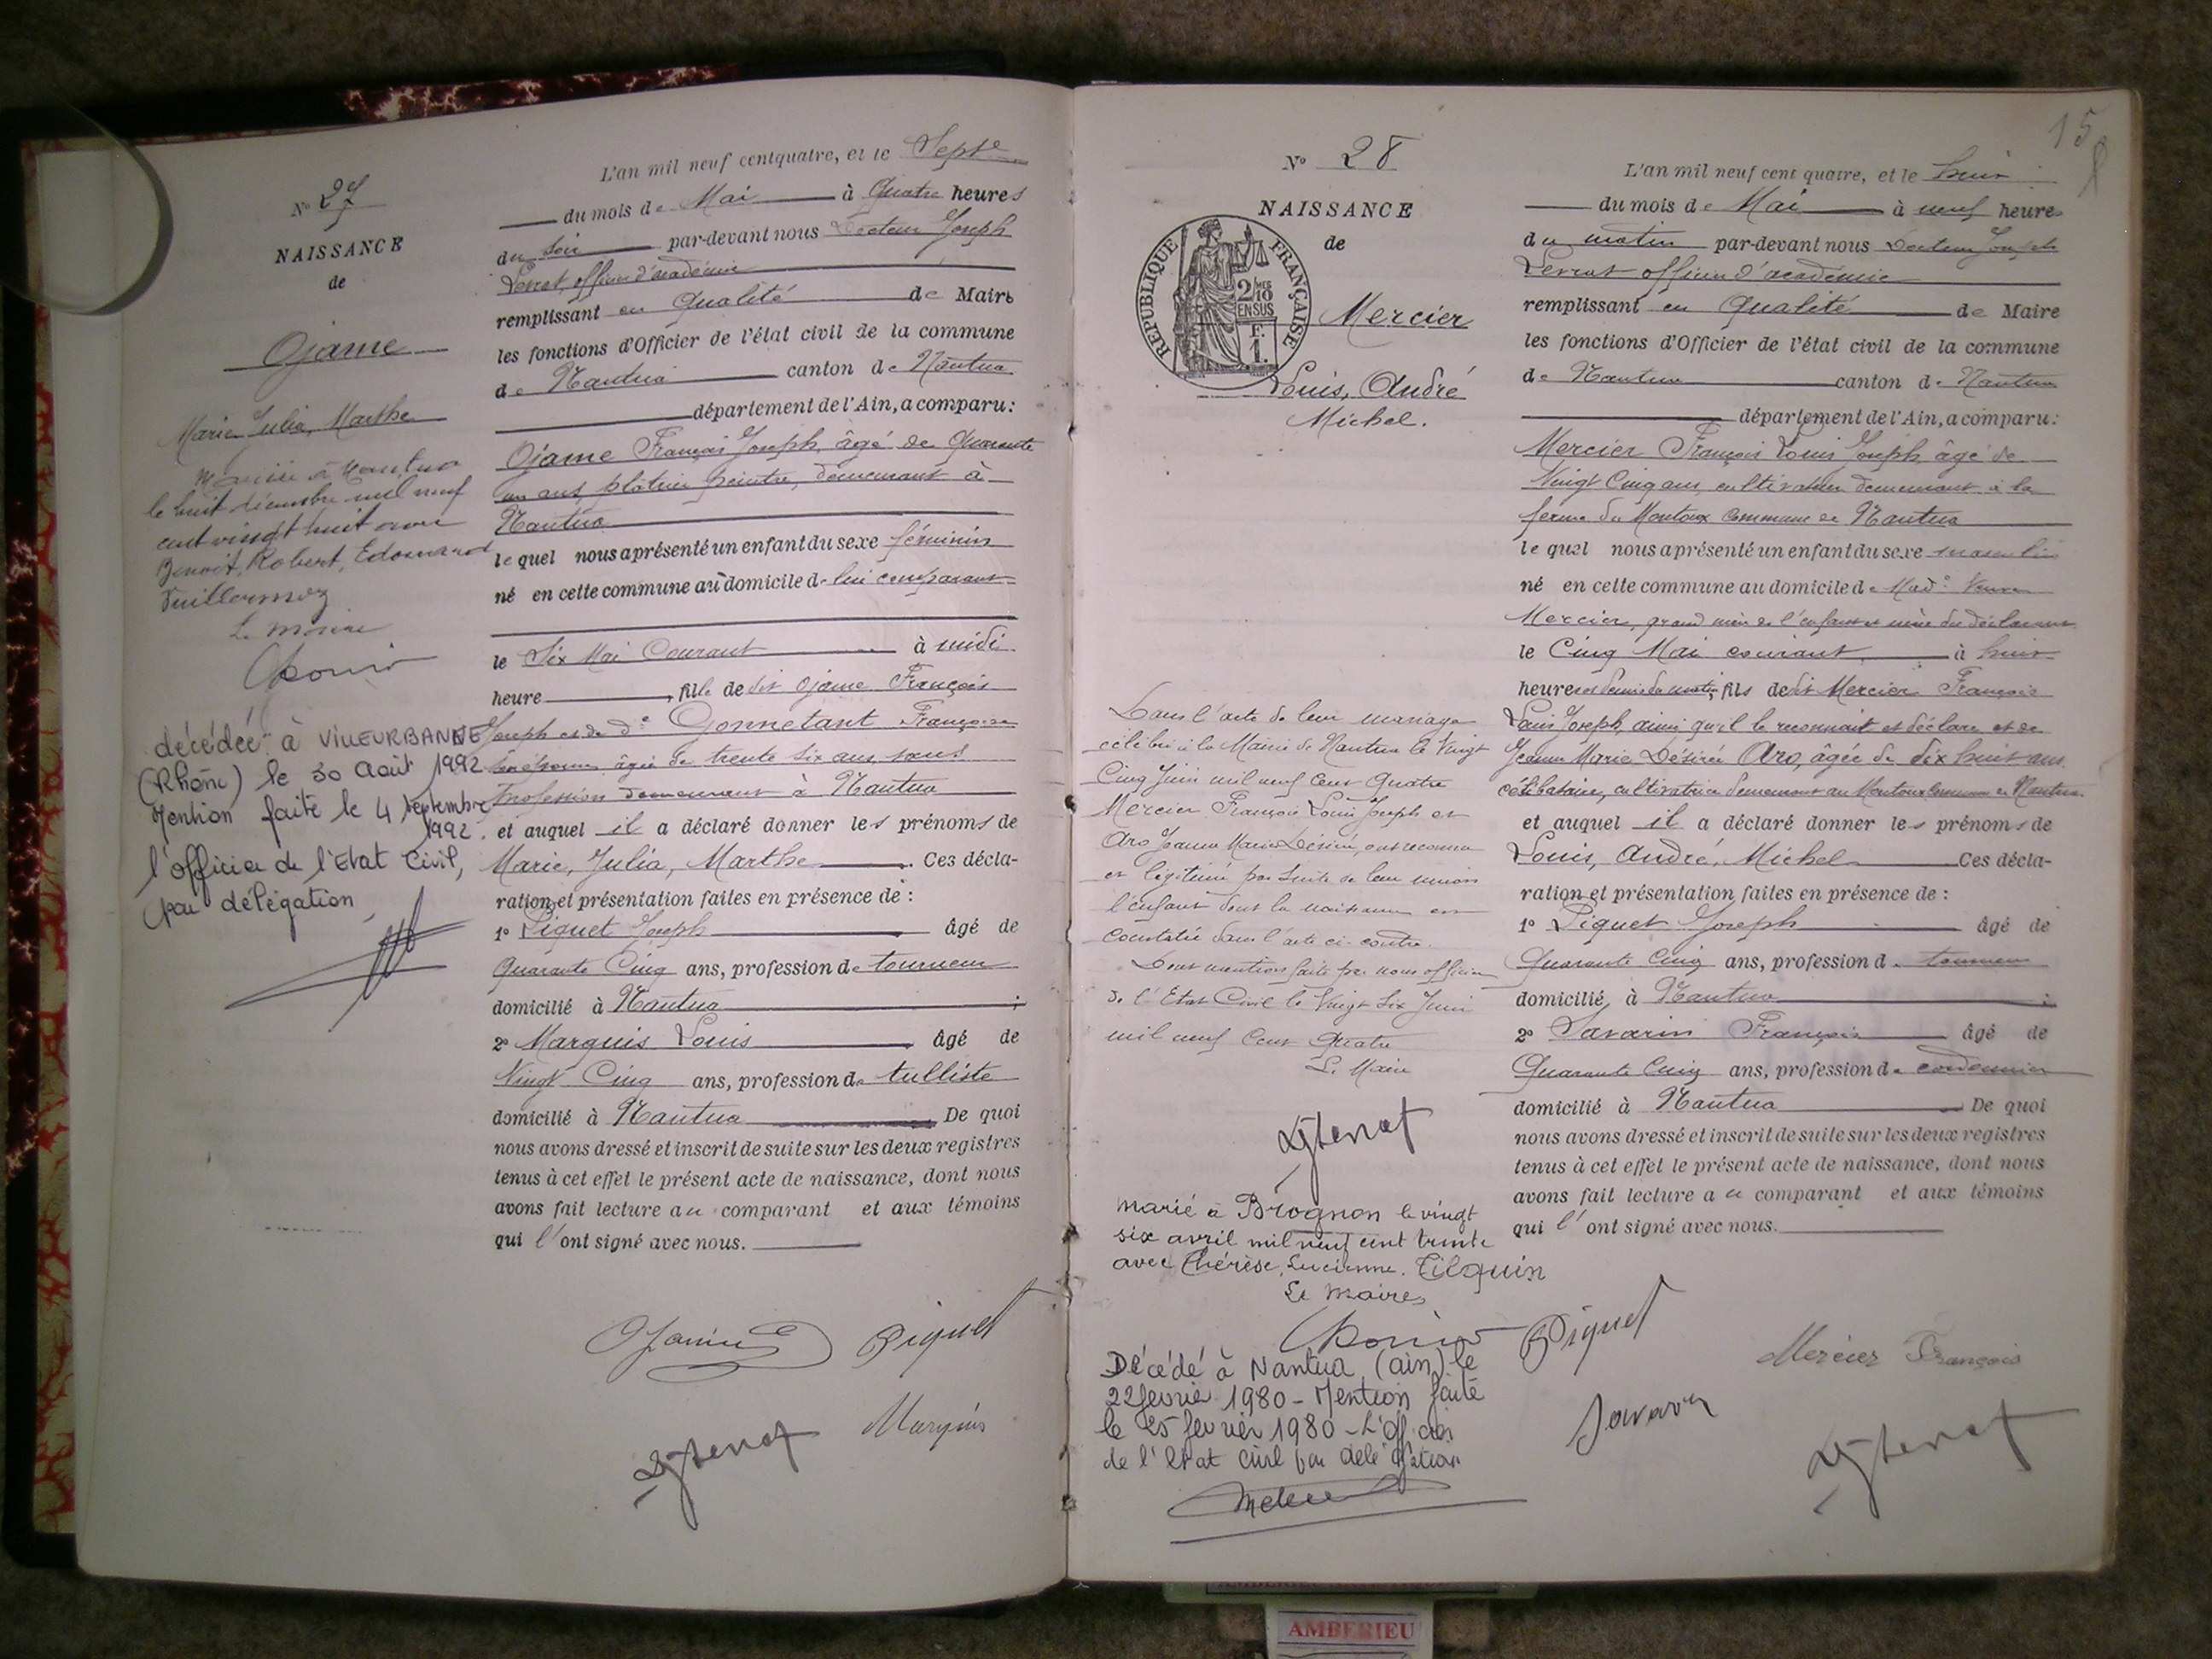 N° 27
NAISSANCE
de
Ojame
Marie Julia, Marthe
Mariée à Nantua
le huit décembre mil neuf
cent vingt huit avec
Benoit, Robert, Edouard
Vuillermoz
Le Maire
décédée à VILLEURBANNE
(Rhône) le 30 Août 1992
Mention faite le 4 septembre
1992.
l'officier de l'Etat Civil,
par délégation
L'an mil neuf cent quatre, et le Sept
du mois de Mai à Quatre heures
du soir par-devant nous Docteur Joseph
Levrat, officier d'académie
remplissant en qualité de Maire
les fonctions d'Officier de l'état civil de la commune
de Nantua canton de Nantua
département de l'Ain, a comparu:
Ojame François Joseph, âgé de Quarante
un ans, platrier peintre, demeurant à
Nantua
lequel nous a présenté un enfant du sexe féminin
né en cette commune au domicile de lui comparant
le Six Mai Courant à midi
heure , fille de dit Ojame François
Joseph et de De Gonnetant Françoise
son épouse âgée de trente six ans sans
profession demeurant à Nantua
et auquel il a déclaré donner les prénoms de
Marie, Julia, Marthe. Ces décla-
ration et présentation faites en présence de :
1° Piquet Joseph âgé de
Quarante Cinq ans, profession de tourneur
domicilié à Nantua ;
2° Marquis Louis âgé de
Vingt Cinq ans, profession de tulliste
domicilié à Nantua De quoi
nous avons dressé et inscrit de suite sur les deux registres
tenus à cet effet le présent acte de naissance, dont nous
avons fait lecture au comparant et aux témoins
qui l'ont signé avec nous.
Ojame Piquet
Marquis
N° 28
NAISSANCE
de
REPUBLIQUE FRANÇAISE
2/10
EN SUS
F.
1.
Mercier
Louis, André
Michel.
Dans l'acte de leur mariage
célébré à la Mairie de Nantua le Vingt
Cinq Juin mil neuf Cent Quatre
Mercier François Louis Joseph et
Aro Jeanne Marie Désirée, ont reconnu
et légitimé par suite de leur union
l'enfant dont la naissance est
constatée dans l'acte ci-contre.
Dont mention faite par nous officier
de l'Etat Civil le Vingt Six Juin
mil neuf Cent Quatre
Le Maire
marié à Brognon le vingt
six avril mil neuf cent trente
avec Thérèse, Lucienne. Tilquin
Le Maire
Décédé à Nantua (ain) le
22 fevrier 1980 - Mention faite
le 25 fevrier 1980 - L'officier
de l'Etat civil par délégation
15
L'an mil neuf cent quatre, et le huit
du mois de Mai à neuf heures
du matin par-devant nous Docteur Joseph
Levrat officier d'académie
remplissant en qualité de Maire
les fonctions d'Officier de l'état civil de la commune
de Nantua canton de Nantua
département de l'Ain, a comparu:
Mercier François Louis Joseph, âgé de
Vingt Cinq ans, cultivateur demeurant à la
ferme du Montoux Commune de Nantua
lequel nous a présenté un enfant du sexe masculin
né en cette commune au domicile de Made Veuve
Mercier, grand mère de l'enfant et mère du déclarant
le Cinq Mai courant à huit
heures et demie du matin, fils de dit Mercier François
Louis Joseph, ainsi qu'il le reconnait et déclare et de
Jeanne Marie Désirée Aro, âgée de dix huit ans
célibataire, cultivatrice demeurant au Montoux Commune de Nantua
et auquel il a déclaré donner les prénoms de
Louis, André, Michel Ces décla-
ration et présentation faites en présence de :
1° Piquet Joseph âgé de
Quarante Cinq ans, profession de tourneur
domicilié à Nantua ;
2° Savarin François âgé de
Quarante Cinq ans, profession de cordonnier
domicilié à Nantua De quoi
nous avons dressé et inscrit de suite sur les deux registres
tenus à cet effet le présent acte de naissance, dont nous
avons fait lecture au comparant et aux témoins
qui l'ont signé avec nous.
Piquet
Mercier François
Savarin
AMBERIEU